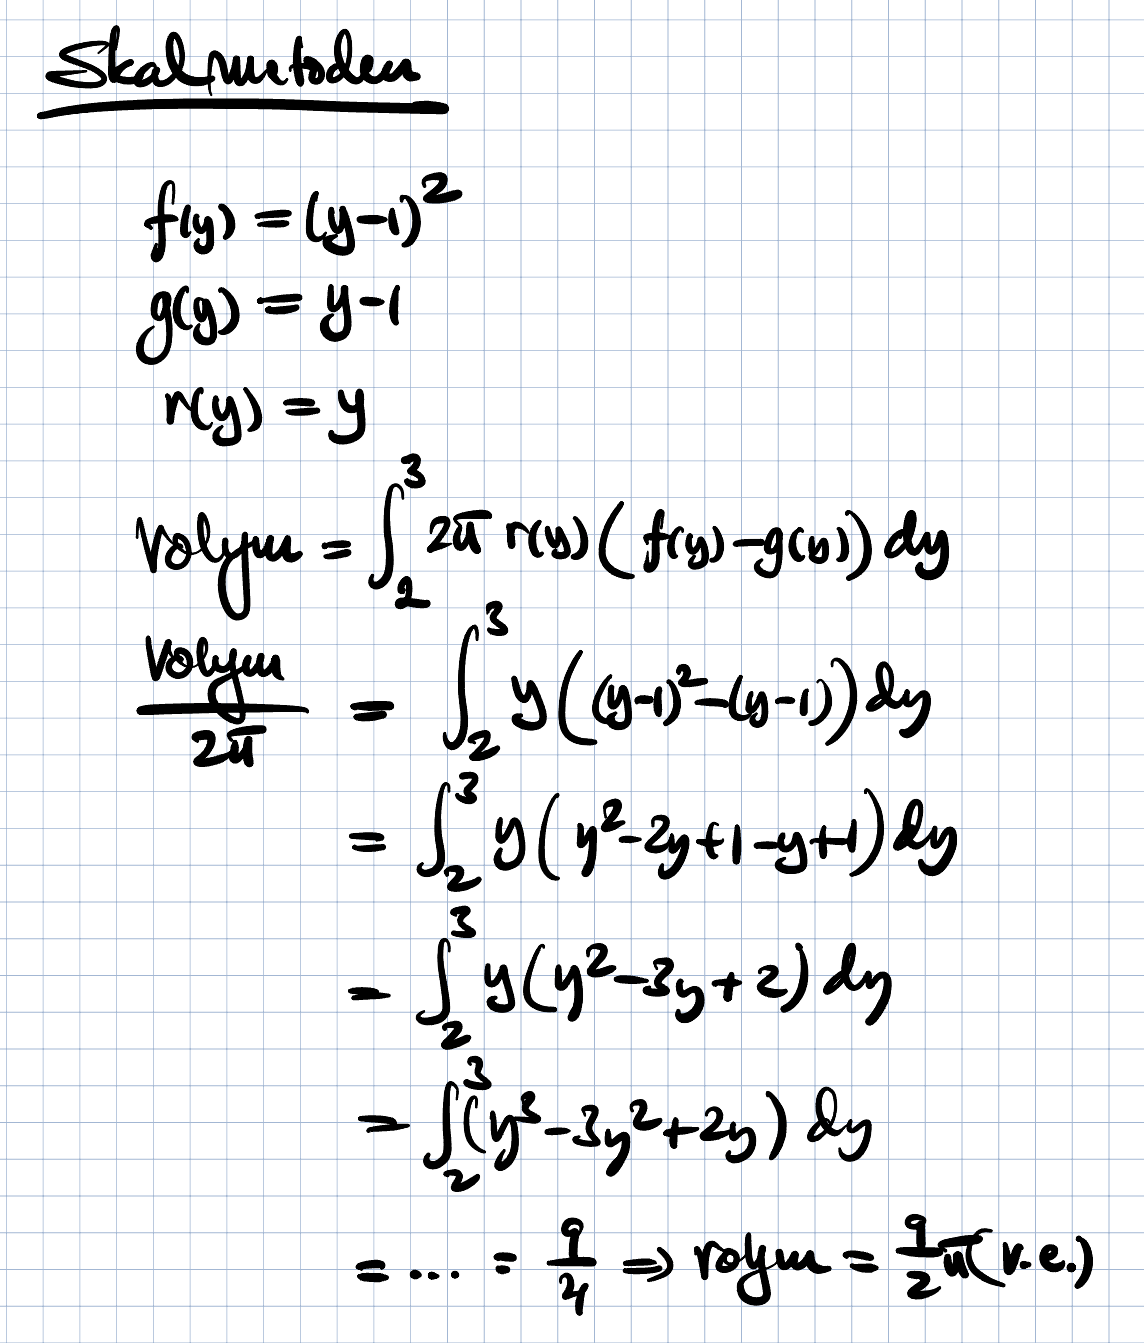 Skalmetoden
f(y) = (y-1)²
g(y) = y-1
r(y) = y
Volym = ∫₂³ 2π r(y) ( f(y) - g(y) ) dy
Volym/2π = ∫₂³ y ( (y-1)² - (y-1) ) dy
= ∫₂³ y ( y² - 2y + 1 - y + 1 ) dy
= ∫₂³ y ( y² - 3y + 2 ) dy
= ∫₂³ ( y³ - 3y² + 2y ) dy
= ... = 9/4 ⇒ volym = 9/2 π (v.e.)